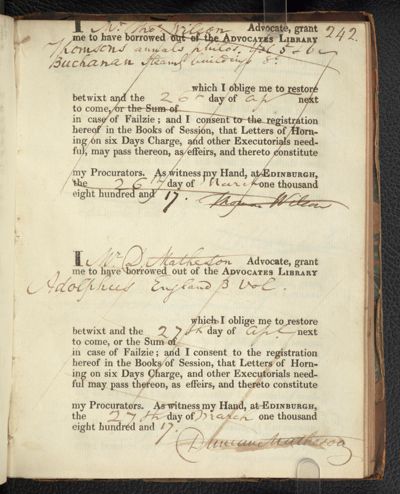 242.
I Mr Thos Wilson Advocate, grant
me to have borrowed out of the ADVOCATES LIBRARY
Thomsons annals philos. Vol 5 & 6
Buchanan Steam buildings 8o
which I oblige me to restore
betwixt and the 26th day of ap next
to come, or the Sum of
in case of Failzie; and I consent to the registration
hereof in the Books of Session, that Letters of Horn-
ing on six Days Charge, and other Executorials need-
ful, may pass thereon, as effeirs, and thereto constitute
my Procurators. As witness my Hand, at EDINBURGH,
the 26th day of March one thousand
eight hundred and 17. Thomas Wilson
I Mr D Matheson Advocate, grant
me to have borrowed out of the ADVOCATES LIBRARY
Adolphus England 3 Vol.
which I oblige me to restore
betwixt and the 27th day of apl. next
to come, or the Sum of
in case of Failzie; and I consent to the registration
hereof in the Books of Session, that Letters of Horn-
ing on six Days Charge, and other Executorials need-
ful may pass thereon, as effeirs, and thereto constitute
my Procurators. As witness my Hand, at EDINBURGH,
the 27th day of March one thousand
eight hundred and 17.
Duncan Matheson